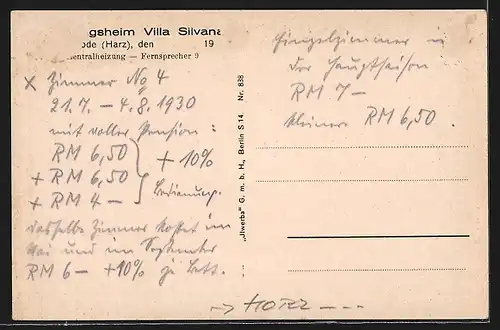 gsheim Villa Silvana
ode (Harz), den 19
entralheizung — Fernsprecher 9
x Zimmer No 4
21.7. – 4.8.1930
mit voller Pension :
RM 6,50
+ RM 6,50 + 10%
+ RM 4 – Bedienung.
dasselbe Zimmer kostet im
Mai und im September
RM 6 – + 10% je Bett.
Einzelzimmer in
der Hauptsaison
RM 7 –
kleinere RM 6,50 .
"Uwerba" G. m. b. H., Berlin S 14. Nr. 838
→ HOTZ – – –